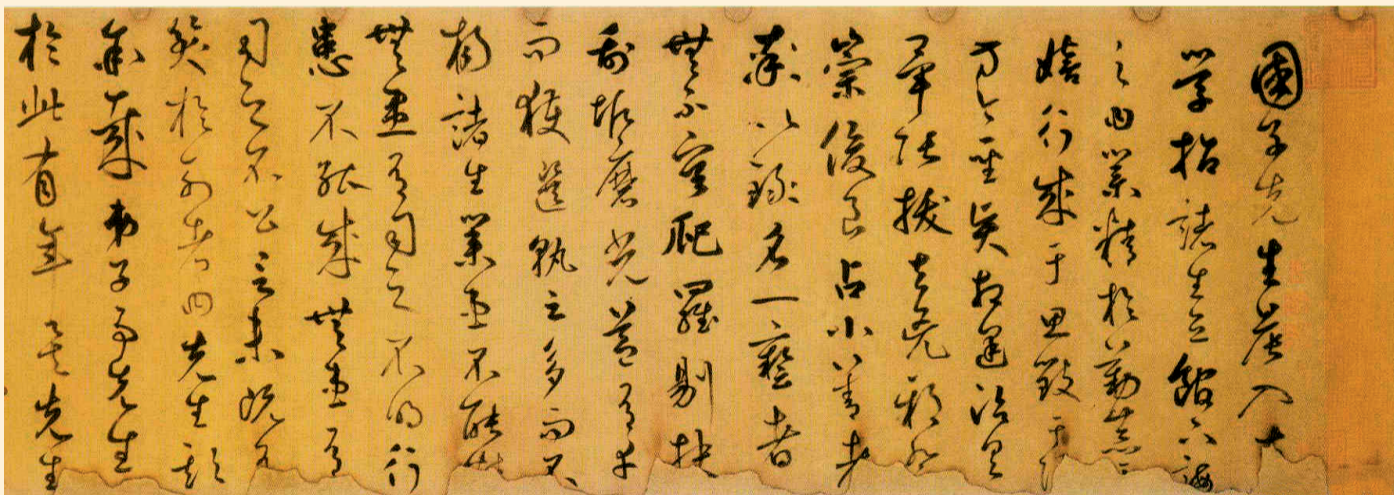 國子先生晨入大
學招諸生立館下誨
之曰業精於勤荒于
嬉行成于思毀于
方今聖賢相逢治具
畢張拔去兇邪登
崇俊良占小善者
率以錄名一藝者
無不庸爬羅剔抉
刮垢磨光蓋有幸
而獲選孰云多而不
揚諸生業患不能精
無患有司之不明行
患不能成無患有
司之不公言未既有
笑於列者曰先生欺
余哉弟子事先生
於此有年矣先生